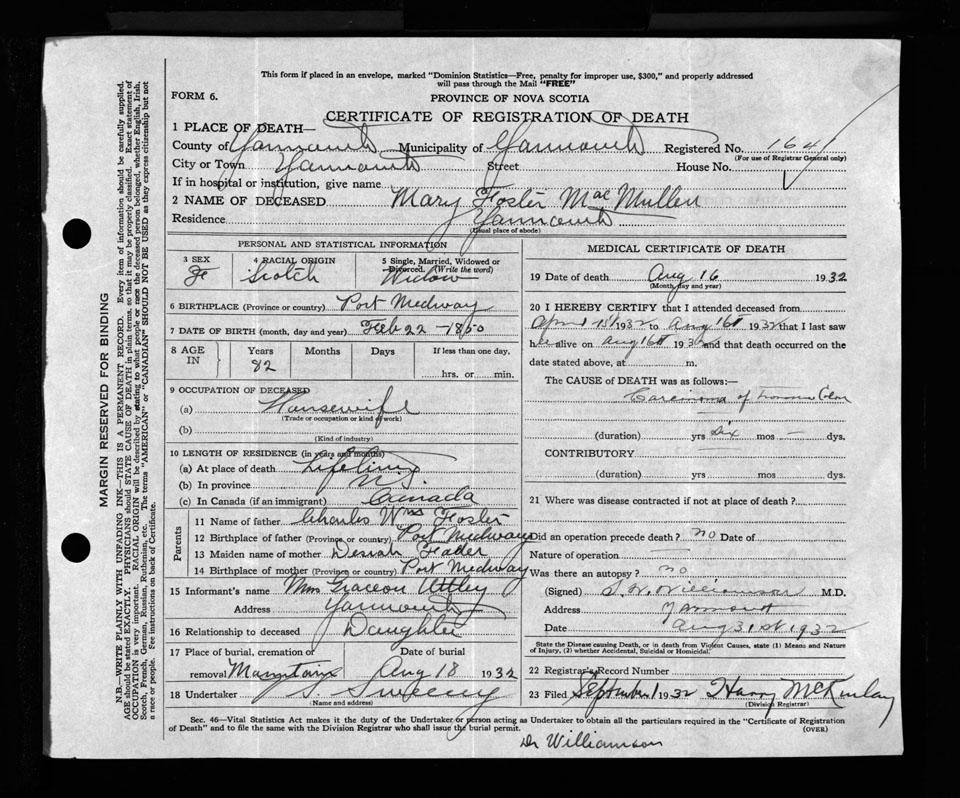 This form if placed in an envelope, marked "Dominion Statistics—Free, penalty for improper use, $300," and properly addressed
will pass through the Mail "FREE"
FORM 6.
PROVINCE OF NOVA SCOTIA
CERTIFICATE OF REGISTRATION OF DEATH
1 PLACE OF DEATH—
County of Yarmouth Municipality of Yarmouth Registered No. 1641
(For use of Registrar General only)
City or Town Yarmouth Street House No.
If in hospital or institution, give name
2 NAME OF DECEASED Mary Foster MacMullen
Residence Yarmouth
(Usual place of abode)
PERSONAL AND STATISTICAL INFORMATION
3 SEX Fe
4 RACIAL ORIGIN Scotch
5 Single, Married, Widowed or Divorced. (Write the word) Widow
6 BIRTHPLACE (Province or country) Port Medway
7 DATE OF BIRTH (month, day and year) Feb 22 - 1850
8 AGE IN Years 82 Months Days If less than one day. hrs. or min.
9 OCCUPATION OF DECEASED
(a) Housewife
(Trade or occupation or kind of work)
(b)
(Kind of industry)
10 LENGTH OF RESIDENCE (in years and months)
(a) At place of death Lifetime
(b) In province N S
(c) In Canada (if an immigrant) Canada
Parents
11 Name of father Charles Wm Foster
12 Birthplace of father (Province or country) Port Medway
13 Maiden name of mother
14 Birthplace of mother (Province or country) Port Medway
15 Informant's name Mrs Uttley
Address Yarmouth
16 Relationship to deceased Daughter
17 Place of burial, cremation or removal Date of burial
Mountain Aug 18 1932
18 Undertaker Sweeny
(Name and address)
MEDICAL CERTIFICATE OF DEATH
19 Date of death Aug 16 1932
(Month, day and year)
20 I HEREBY CERTIFY that I attended deceased from
April 15 1932 to Aug 16th 1932 that I last saw
her alive on Aug 16th 1932 and that death occurred on the
date stated above, at m.
The CAUSE of DEATH was as follows:—
Carcinoma of Colon
(duration) yrs Six mos — dys.
CONTRIBUTORY
(duration) yrs. mos. dys.
21 Where was disease contracted if not at place of death?
Did an operation precede death? no Date of
Nature of operation
Was there an autopsy? no
(Signed) S. W. Williamson M.D.
Address Yarmouth
Date Aug 31st 1932
State the Disease causing Death, or in death from Violent Causes, state (1) Means and
Nature of Injury, (2) whether Accidental, Suicidal or Homicidal.
22 Registrar's Record Number
23 Filed September 1 1932 Harry McKinlay
(Division Registrar)
Sec. 46—Vital Statistics Act makes it the duty of the Undertaker or person acting as Undertaker to obtain all the particulars required in the "Certificate of Registration
of Death" and to file the same with the Division Registrar who shall issue the burial permit. (OVER)
Dr Williamson
MARGIN RESERVED FOR BINDING
N.B.—WRITE PLAINLY WITH UNFADING INK—THIS IS A PERMANENT RECORD. Every item of information should be carefully supplied.
AGE should be stated EXACTLY. PHYSICIANS should STATE CAUSE OF DEATH in plain terms, so that it may be properly classified. Exact statement of
OCCUPATION is very important. RACIAL ORIGIN will be described by stating to what people or race the deceased person belonged, whether English, Irish,
Scotch, French, German, Russian, Ruthenian, etc. The terms "AMERICAN" or "CANADIAN" SHOULD NOT BE USED as they express citizenship but not
a race or people. See instructions on back of Certificate.